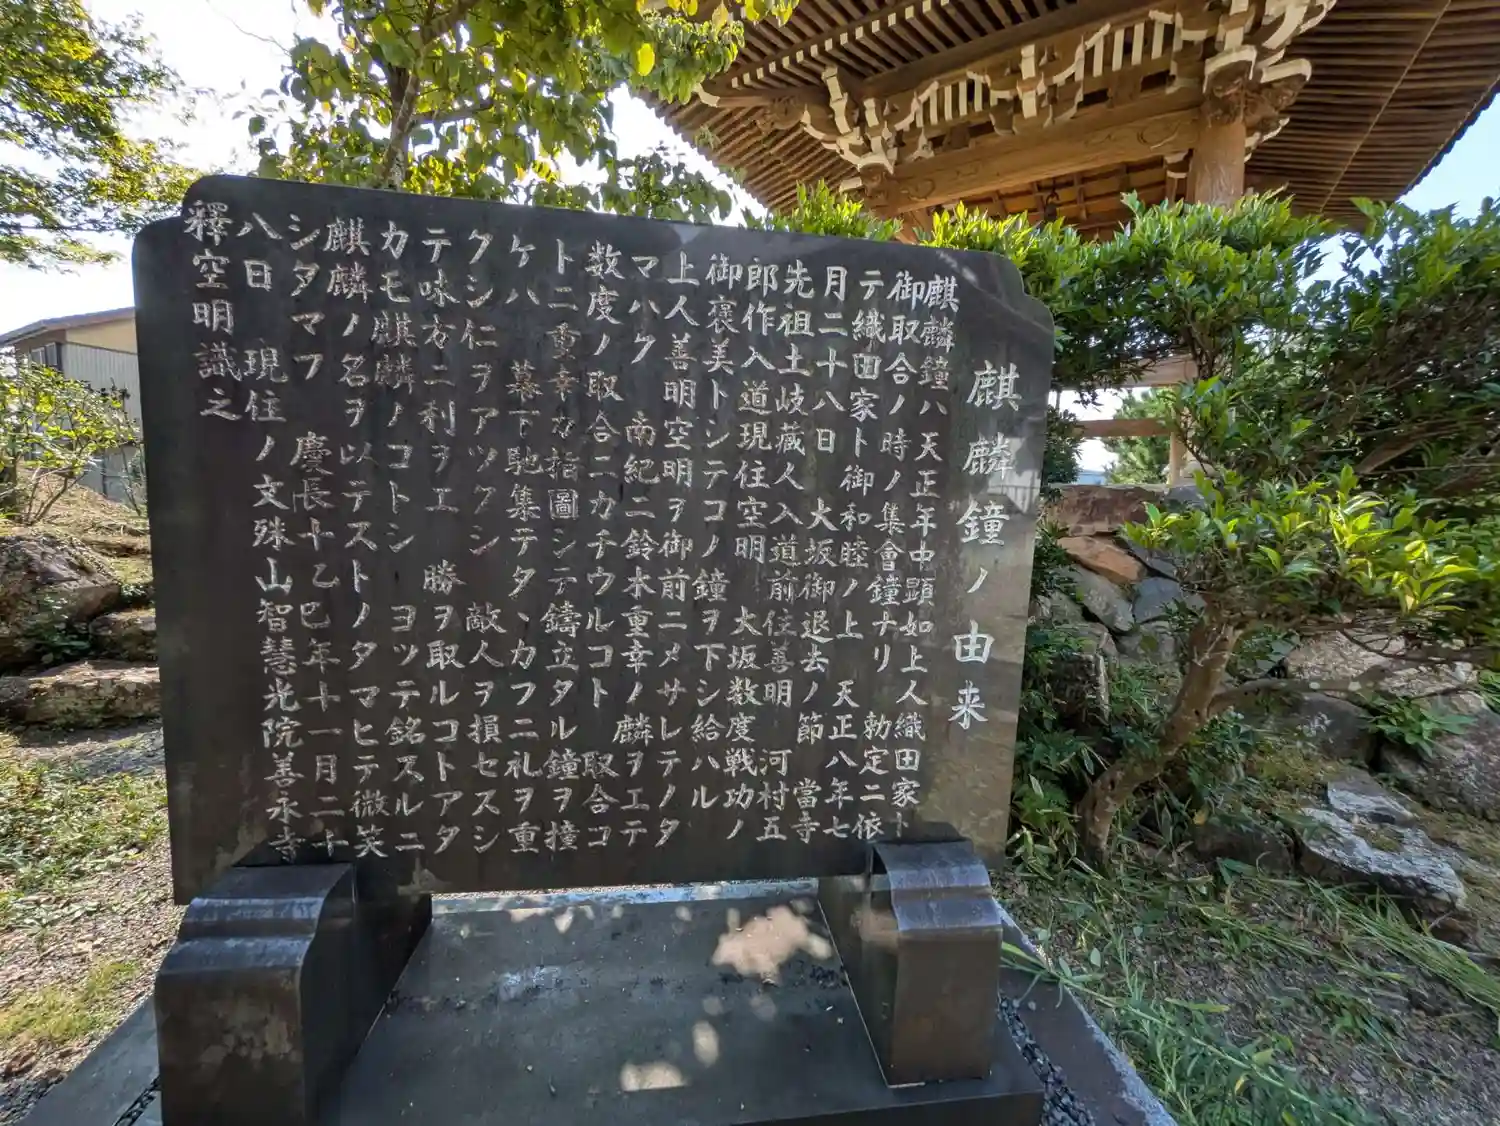 麒麟鐘ノ由来
麒麟鐘ハ 天正年中顕如上人織田家ト
御取合ノ時ノ集會鐘ナリ 勅定ニ依
テ織田家ト御和睦ノ上 天正八年七
月二十八日 大坂御退去ノ節 當寺
先祖土岐藏人入道前住善明 河村五
郎作入道現住空明 大坂数度戦功ノ
御褒美トシテコノ鐘ヲ下シ給ハル
上人善明空明ヲ御前ニメサレテノタ
マハク 南紀ニ鈴木重幸ノ麟ヲエテ
数度ノ取合ニカチウルコト 取合コ
トニ重幸カ指圖シテ鑄立タル鐘ヲ撞
ケハ 幕下馳集テタヽカフニ礼ヲ重
クシ仁ヲアツクシ 敵人ヲ損セスシ
テ味方ニ利ヲエ 勝ヲ取ルコトアタ
カモ麒麟ノコトシ ヨツテ銘スルニ
麒麟ノ名ヲ以テストノタマヒテ微笑
シタマフ 慶長十乙巳年十一月二十
八日 現住ノ文殊山智慧光院善永寺
釋空明識之